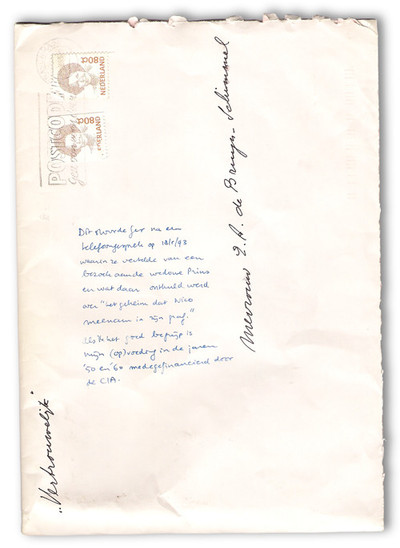 80 ct
NEDERLAND
80 ct
NEDERLAND
POSTCODE
Mevrouw E.A. de Bruyn-Schimmel
"Vertrouwelijk"
Dit stuurde Ger na een
telefoongesprek op 18/5/93
waarin ze vertelde van een
bezoek aan de weduwe Prins
en wat daar onthuld werd
over "het geheim dat Nico
meenam in zijn graf."
Als ik het goed begrijp is
mijn (op)voeding in de jaren
'50 en '60 medegefinancierd door
de CIA.